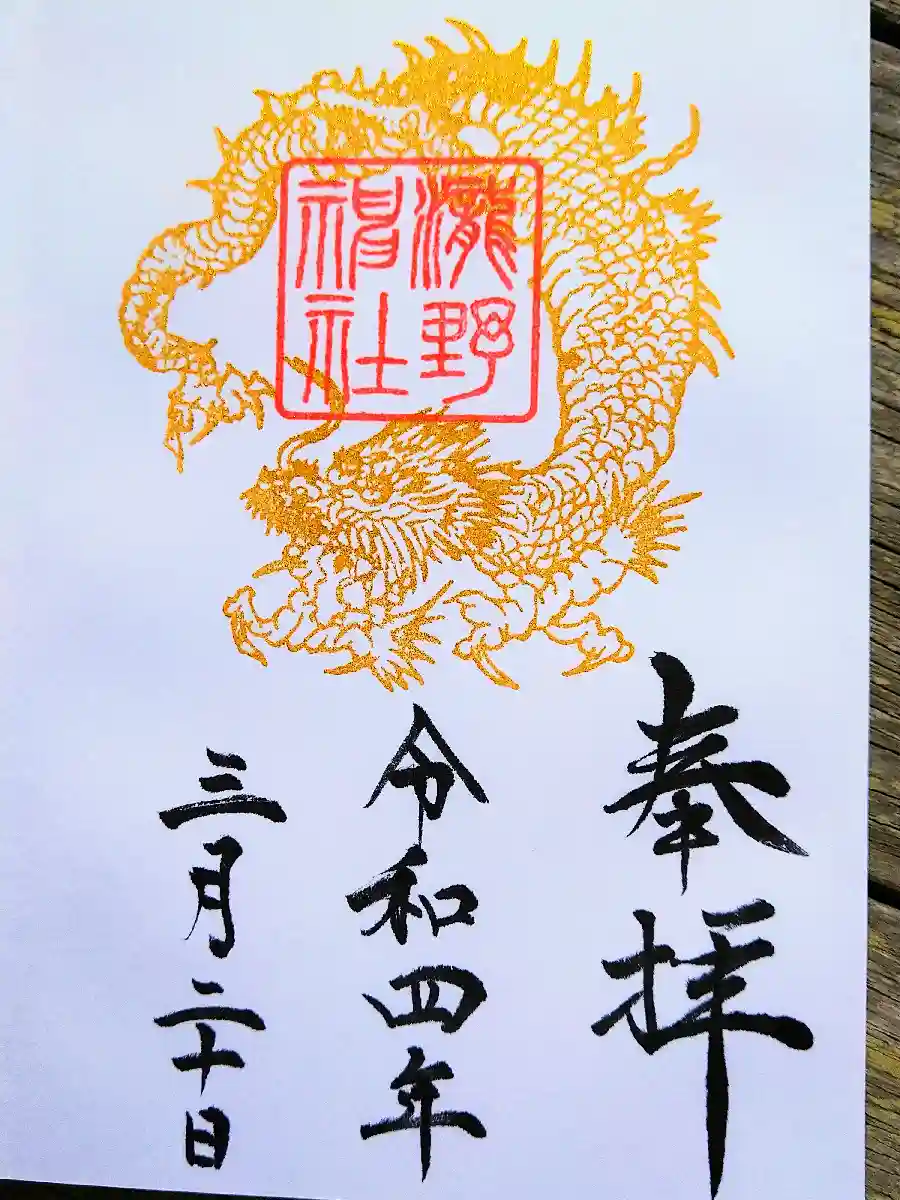 瀧野
神社
奉拝
令和四年
三月二十日